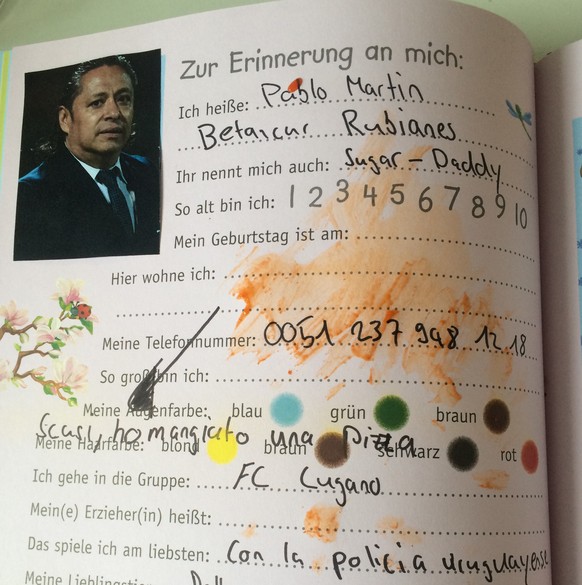 Zur Erinnerung an mich:
Ich heiße: Pablo Martin
Betancur Rubianes
Ihr nennt mich auch: Sugar-Daddy
So alt bin ich: 1 2 3 4 5 6 7 8 9 10
Mein Geburtstag ist am:
Hier wohne ich:
Meine Telefonnummer: 0051 237 948 12 18
So groß bin ich:
Meine Augenfarbe: blau grün braun
Scusi, ho mangiato una Pizza
Meine Haarfarbe: blond braun schwarz rot
Ich gehe in die Gruppe: FC Lugano
Mein(e) Erzieher(in) heißt:
Das spiele ich am liebsten: Con la policia uruguayense
Meine